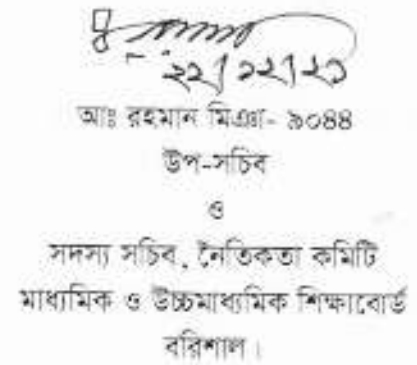 ২২/১২/২১
আঃ রহমান মিঞা- ৯০৪৪
উপ-সচিব
ও
সদস্য সচিব, নৈতিকতা কমিটি
মাধ্যমিক ও উচ্চমাধ্যমিক শিক্ষাবোর্ড
বরিশাল।